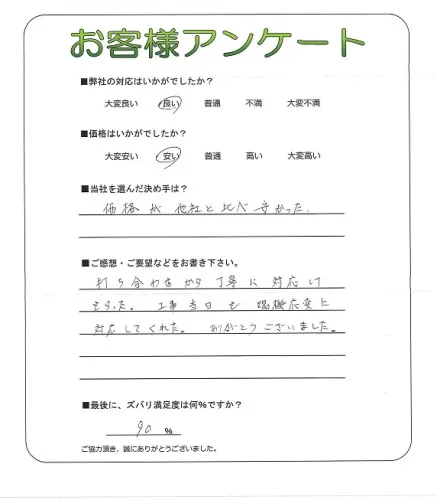 お客様アンケート
■弊社の対応はいかがでしたか？
大変良い 良い 普通 不満 大変不満
■価格はいかがでしたか？
大変安い 安い 普通 高い 大変高い
■当社を選んだ決め手は？
価格が他社と比べ安かった.
■ご感想・ご要望などをお書き下さい。
打ち合わせから丁寧に対応して
もらった。工事当日も臨機応変に
対応してくれた。ありがとうございました。
■最後に、ズバリ満足度は何％ですか？
90 ％
ご協力頂き、誠にありがとうございました。